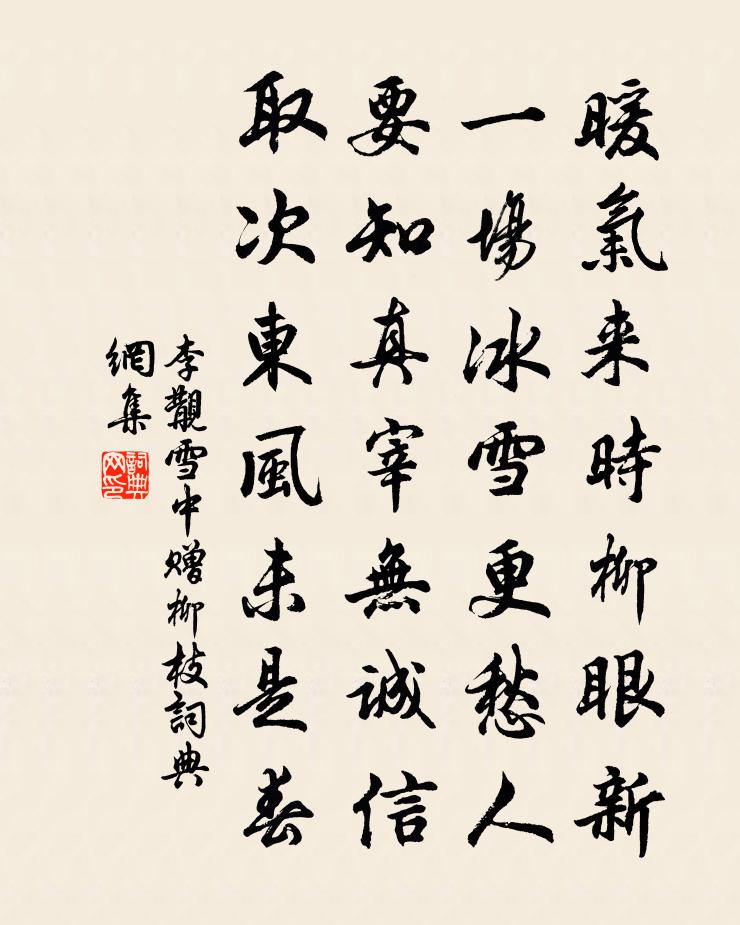 暖氣来時柳眼新
一場冰雪更愁人
要知真宰無誠信
取次東風未是春
李觀雪中赠柳枝詞典
網集
詞典
网印